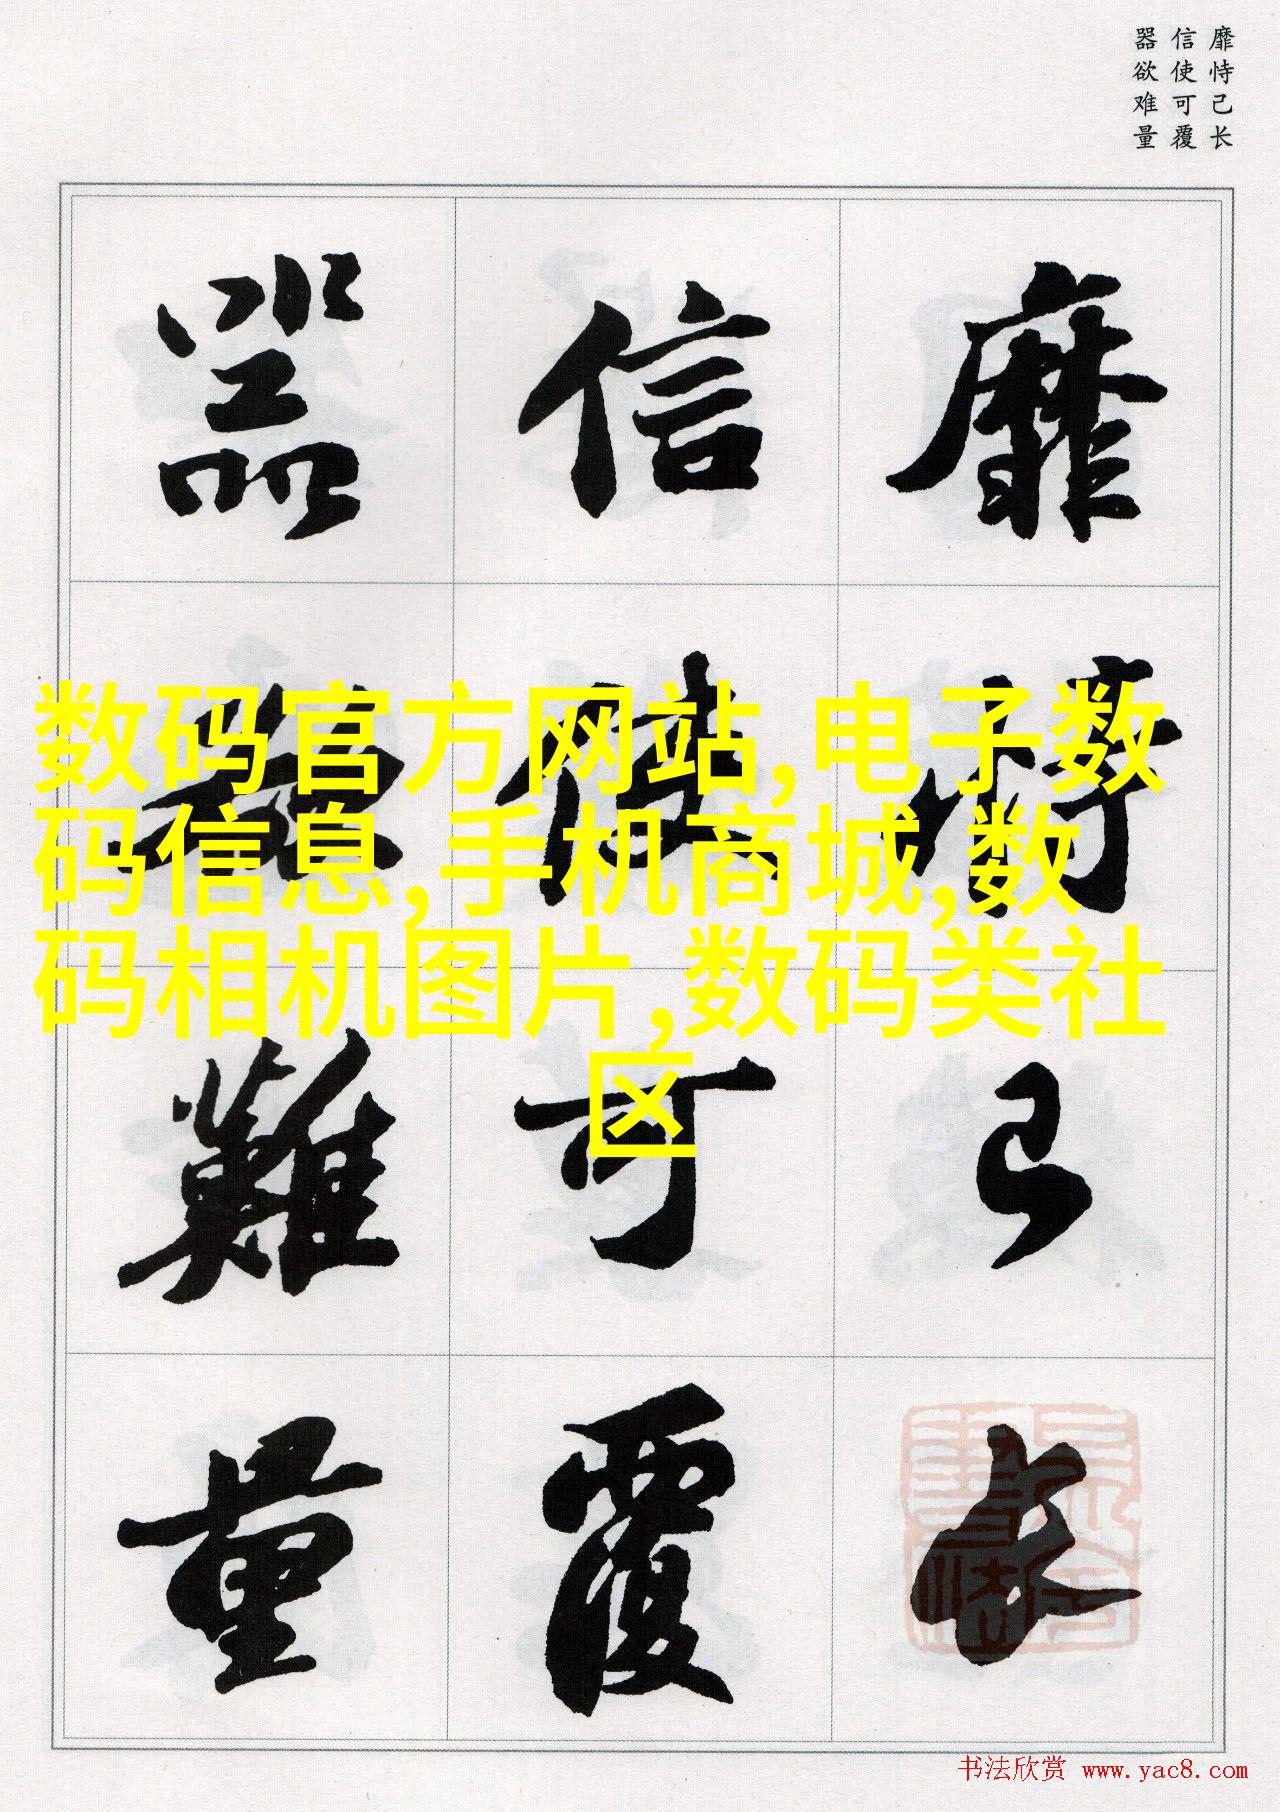 靡恃己长
信使可覆
器欲难量
靡恃己長
信使可覆
器欲難量
数码官方网站,电子数
码信息,手机商城,数
码相机图片,数码类社
区
书法欣赏 www.yac8.com